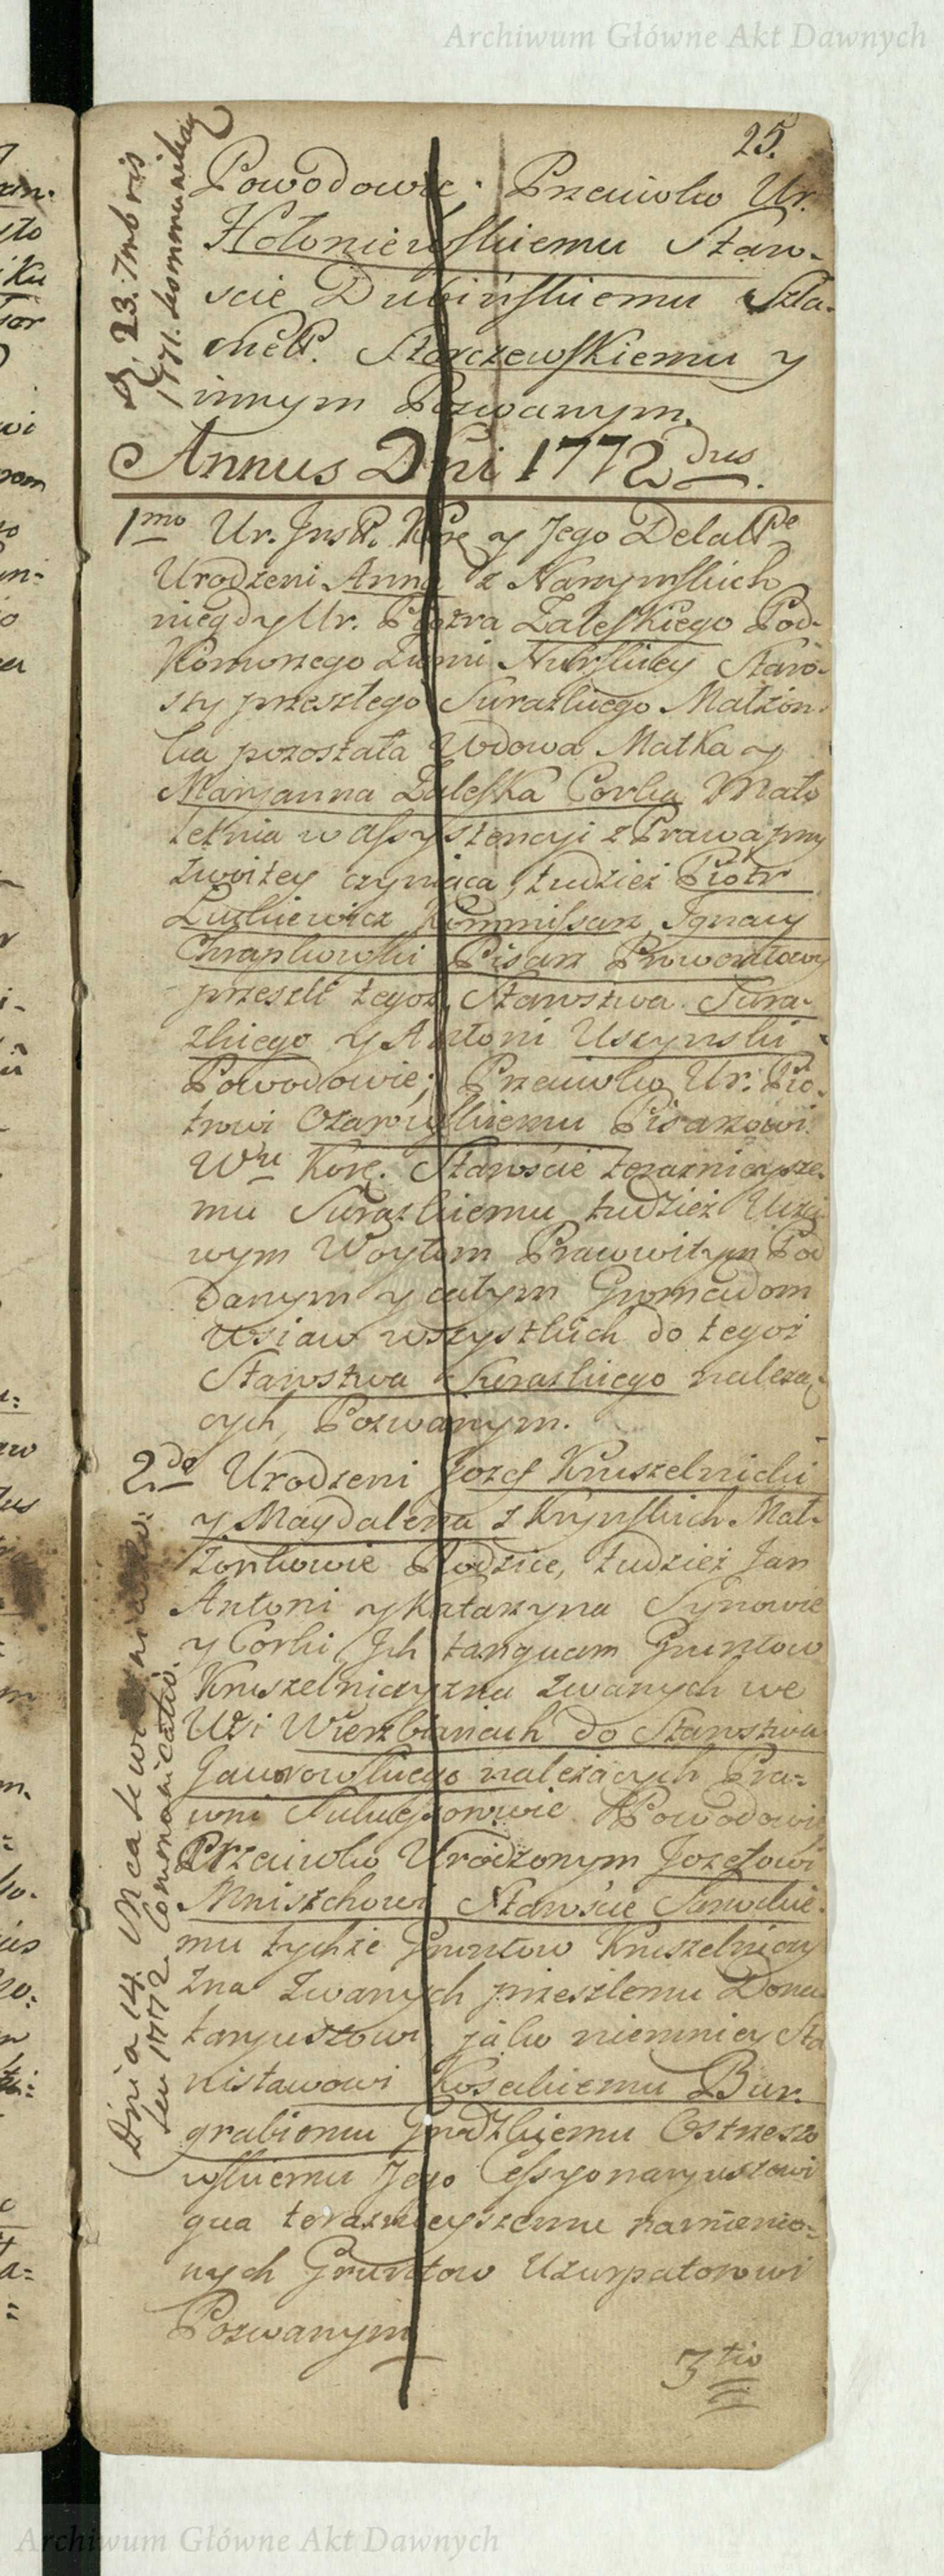 Archiwum Główne Akt Dawnych
25.
D. 23. 7mbris
1771.
Powodowie. Przeciwko Ur.
Hołoniewskiemu Staro-
scie Dubińskiemu Szla-
chett. Starczewskiemu y
innym Pozwanym.
Annus Dni 1772dus.
1mo Ur. Inst. Kore y Jego Delatt
Urodzeni Anna z Narzymskich
niegdy Ur. Piotra Zaleskiego Pod-
Komorzego Ziemi Nurskiey Staro-
sty przeszłego Suraskiego Małżon-
ka pozostała Wdowa Matka y
Maryanna Zaleska Corka Mało
letnia w assystencyi z Prawa przy
zwoitey czyniąca, tudzież Piotr
Luzkiewicz Kommissarz, Ignacy
Chrapkowski Pisarz Prowentowy
przeszli tegoż Starostwa Sura-
skiego y Antoni Uszynski
Powodowie; Przeciwko Ur: Pio-
trowi Ożarowskiemu Pisarzowi
Wu Kore. Staroscie terazniejsze-
mu Suraskiemu tudzież Uczci
wym Woytom Prawwitym Pod
danym y całym Gromadom
Wsiaw wszystkich do tegoż
Starostwa Suraskiego należą-
cych, Pozwanym.
2do Urodzeni Jozef Kruszelnicki
y Magdalena z Krynskich Mał-
żonkowie Rodzice, tudzież Jan
Antoni y Katarzyna Synowie
y Corki Jch tanquam Gruntow
Kruszelnicyzna zwanych we
Wsi Wierzbiancach do Starostwa
Gaworowskiego należących Pra-
wni Powodowie
Przeciwko Urodzonym Jozefowi
Mniszchowi Staroscie Sanockie-
mu tychże Gruntow Kruszelniczy
zna zwanych przeszłemu Dona
taryuszowi, jako niemniey Sta
nisławowi Koseckiemu Bur-
grabiemu Grodzkiemu Ostrzeszo
wskiemu Jego Cessyonaryuszowi
qua terazniejszemu namienio-
nych Gruntow Uzurpatorowi
Pozwanym
Dnia 14. Mca
1772 Communicatio.
3tio
Archiwum Główne Akt Dawnych